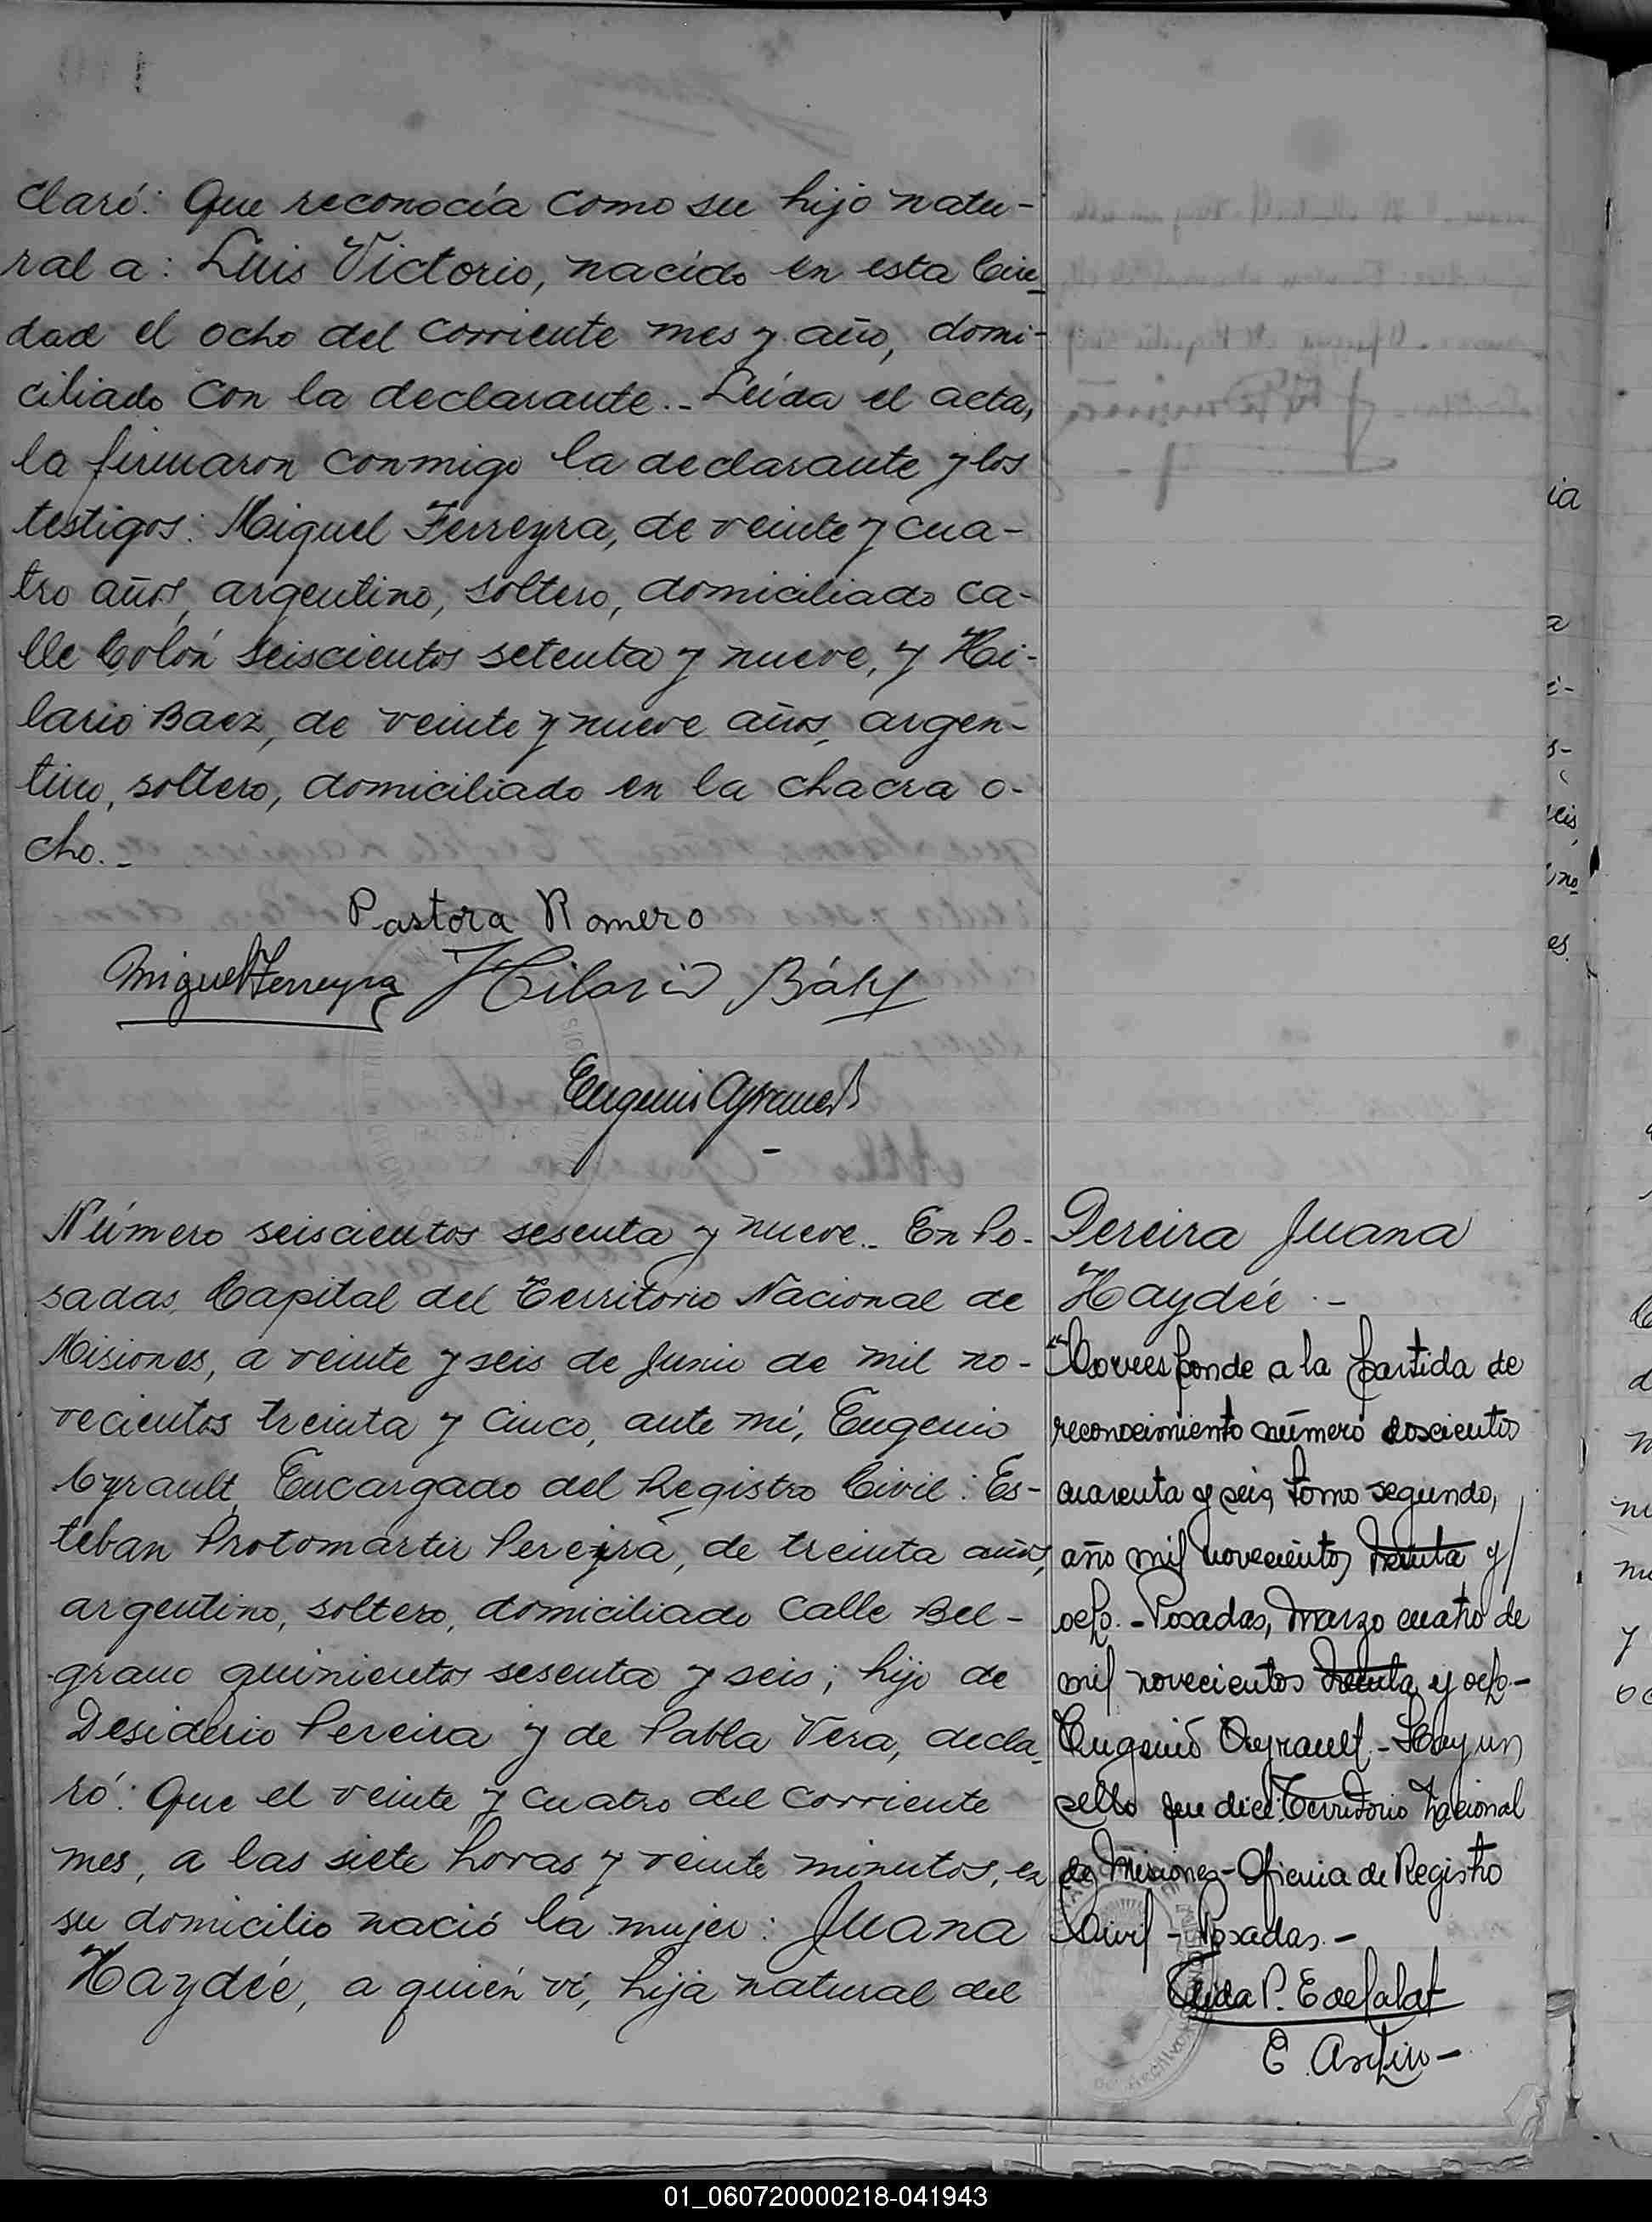 claró: Que reconocía como su hijo natu-
ral a: Luis Victorio, nacido en esta Ciu
dad el ocho del corriente mes y año, domi-
ciliado con la declarante._ Leída el acta,
la firmaron conmigo la declarante y los
testigos: Miguel Ferreyra, de veinte y cua-
tro años, argentino, soltero, domiciliado ca-
lle Colón seiscientos setenta y nueve, y Hi-
lario Baez, de veinte y nueve años, argen-
tino, soltero, domiciliado en la chacra o-
cho._
Pastora Romero
Miguel Ferreyra Hilario Báez
Eugenio Ayrault
Número seiscientos sesenta y nueve._ En Po-
sadas, Capital del Territorio Nacional de
Misiones, a veinte y seis de Junio de mil no-
vecientos treinta y cinco, ante mí, Eugenio
Ayrault, Encargado del Registro Civil: Es-
teban Protomartir Pereira, de treinta años,
argentino, soltero, domiciliado calle Bel-
grano quinientos sesenta y seis; hijo de
Desiderio Pereira y de Pabla Vera, decla-
ró: Que el veinte y cuatro del corriente
mes, a las siete horas y veinte minutos, en
su domicilio nació la mujer: Juana
Haydée, a quién ví, hija natural del
Pereira Juana
Haydée -
"Corresponde a la partida de
reconocimiento número doscientos
cuarenta y seis, tomo segundo,
año mil novecientos treinta y
ocho.- Posadas, Marzo cuatro de
mil novecientos treinta y ocho-
Eugenio Ayrault - Hay un
sello que dice: Territorio Nacional
de Misiones - Oficina de Registro
Civil - Posadas.-
01_060720000218-041943